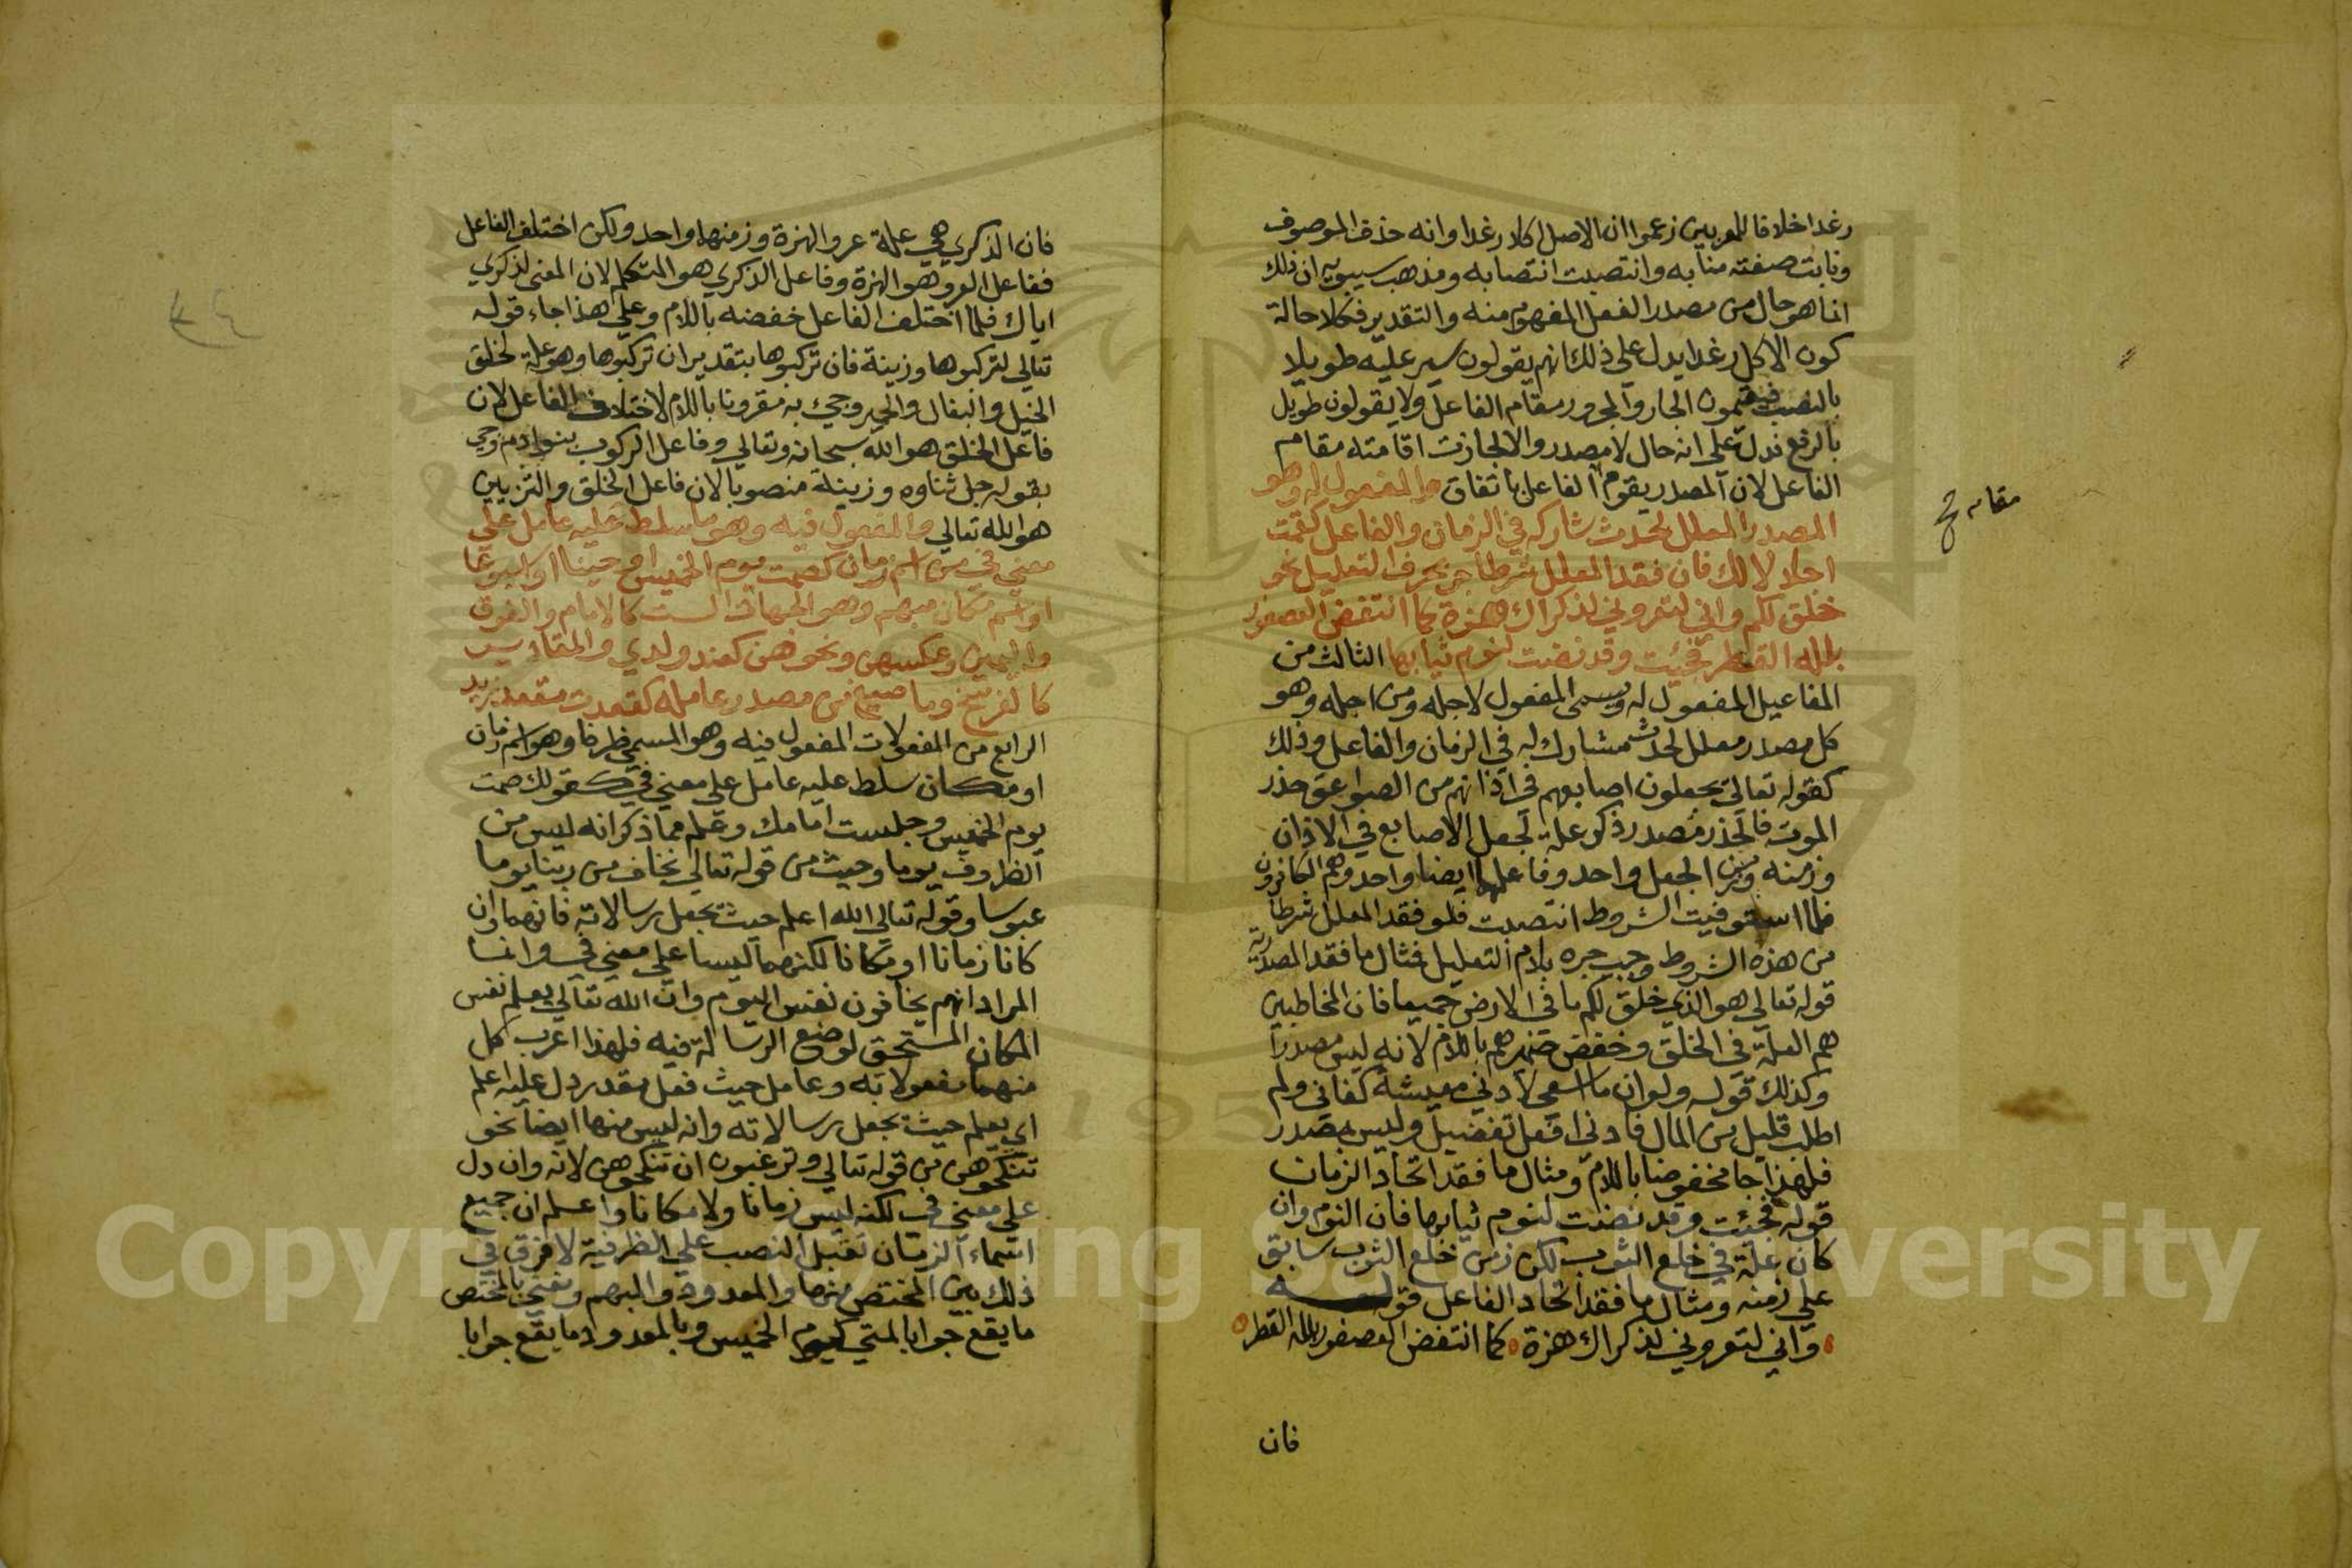 رغدا خلافا للمعربين زعموا ان الاصل اكلا رغدا وانه حذف الموصوف
ونابت صفته منابه وانتصبت انتصابه ومذهب سيبويه ان ذلك
انما هو حال من مصدر الفعل المفهوم منه والتقدير فكلا حالة
كون الاكل رغدا يدل على ذلك انهم يقولون سير عليه طويلا
بالنصب فيقيمون الجار والمجرور مقام الفاعل ولا يقولون طويل
بالرفع فدل على انه حال لا مصدر والا لجازت اقامته مقام
الفاعل لان المصدر يقوم الفاعل باتفاق والمفعول له وهو
مقام صح
المصدر المعلل لحدث شاركه في الزمان والفاعل كقمت
اجلالا لك فان فقد المعلل شرطا جر بحرف التعليل نحو
خلق لكم واني لتعروني لذكراك هزة كما انتفض العصفور
بلله القطر فجئت وقد نضت لنوم ثيابها الثالث من
المفاعيل المفعول له ويسمى المفعول لاجله ومن اجله وهو
كل مصدر معلل لحدث مشارك له في الزمان والفاعل وذلك
كقوله تعالى يجعلون اصابعهم في اذانهم من الصواعق حذر
الموت فالحذر مصدر ذكر علة لجعل الاصابع في الاذان
وزمنه وزمن الجعل واحد وفاعلهما ايضا واحد وهم الكافرون
فلما استوفيت الشروط انتصبت فلو فقد المعلل شرطا
من هذه الشروط وجب جره بلام التعليل فمثال ما فقد المصدرية
قوله تعالى هو الذي خلق لكم ما في الارض جميعا فان المخاطبين
هم العلة في الخلق وخفض ضميرهم باللام لانه ليس مصدرا
وكذلك قوله ولو ان ما اسعى لادنى معيشة كفاني ولم
اطلب قليل من المال فادنى افعل تفضيل وليس بمصدر
فلهذا جا مخفوضا باللام ومثال ما فقد اتحاد الزمان
قوله فجئت وقد نضت لنوم ثيابها فان النوم وان
كان علة في خلع الثوب لكن زمن خلع الثوب سابق
على زمنه ومثال ما فقد اتحاد الفاعل قوله
واني لتعروني لذكراك هزة كما انتفض العصفور بلله القطر
فان
فان الذكرى هي علة عرو الهزة وزمنهما واحد ولكن اختلف الفاعل
ففاعل العرو هو الهزة وفاعل الذكرى هو المتكلم لان المعنى لذكري
اياك فلما اختلف الفاعل خفضه باللام وعلى هذا جاء قوله
تعالى لتركبوها وزينة فان تركبوها بتقدير ان تركبوها وهو علة لخلق
الخيل والبغال والحمير وجيء به مقرونا باللام لاختلاف الفاعل لان
فاعل الخلق هو الله سبحانه وتعالى وفاعل الركوب بنو ادم وجي
بقوله جل ثناوه وزينة منصوبا لان فاعل الخلق والتزيين
هو الله تعالى والمفعول فيه وهو ما سلط عليه عامل على
معنى في من اسم زمان كصمت يوم الخميس او حينا او اسبوعا
او اسم مكان مبهم وهو الجهات الست كالامام والفوق
واليمين وعكسهن ونحوهن كعند ولدي والمقادير
كالفرسخ وما صيغ من مصدر عامله كقعدت مقعد زيد
الرابع من المفعولات المفعول فيه وهو المسمى ظرفا وهو اسم زمان
او مكان سلط عليه عامل على معنى في كقولك صمت
يوم الخميس وجلست امامك وعلم مما ذكر انه ليس من
الظروف يوما وحيث من قوله تعالى نخاف من ربنا يوما
عبوسا وقوله تعالى الله اعلم حيث يجعل رسالاته فانهما وان
كانا زمانا او مكانا لكنهما ليسا على معنى في وانما
المراد انهم يخافون نفس اليوم وان الله تعالى يعلم نفس
المكان المستحق لوضع الرسالة فيه فلهذا اعرب كل
منهما مفعولا به وعامل حيث فعل مقدر دل عليه اعلم
اي يعلم حيث يجعل رسالاته وانه ليس منهما ايضا نحو
تنكحوهن من قوله تعالى وترغبون ان تنكحوهن لانه وان دل
على معنى في لكنه ليس زمانا ولا مكانا واعلم ان جميع
اسماء الزمان تقبل النصب على الظرفية لا فرق في
ذلك بين المختص منها والمعدود والمبهم ونعني بالمختص
ما يقع جوابا لمتى كيوم الخميس وبالمعدود ما يقع جوابا